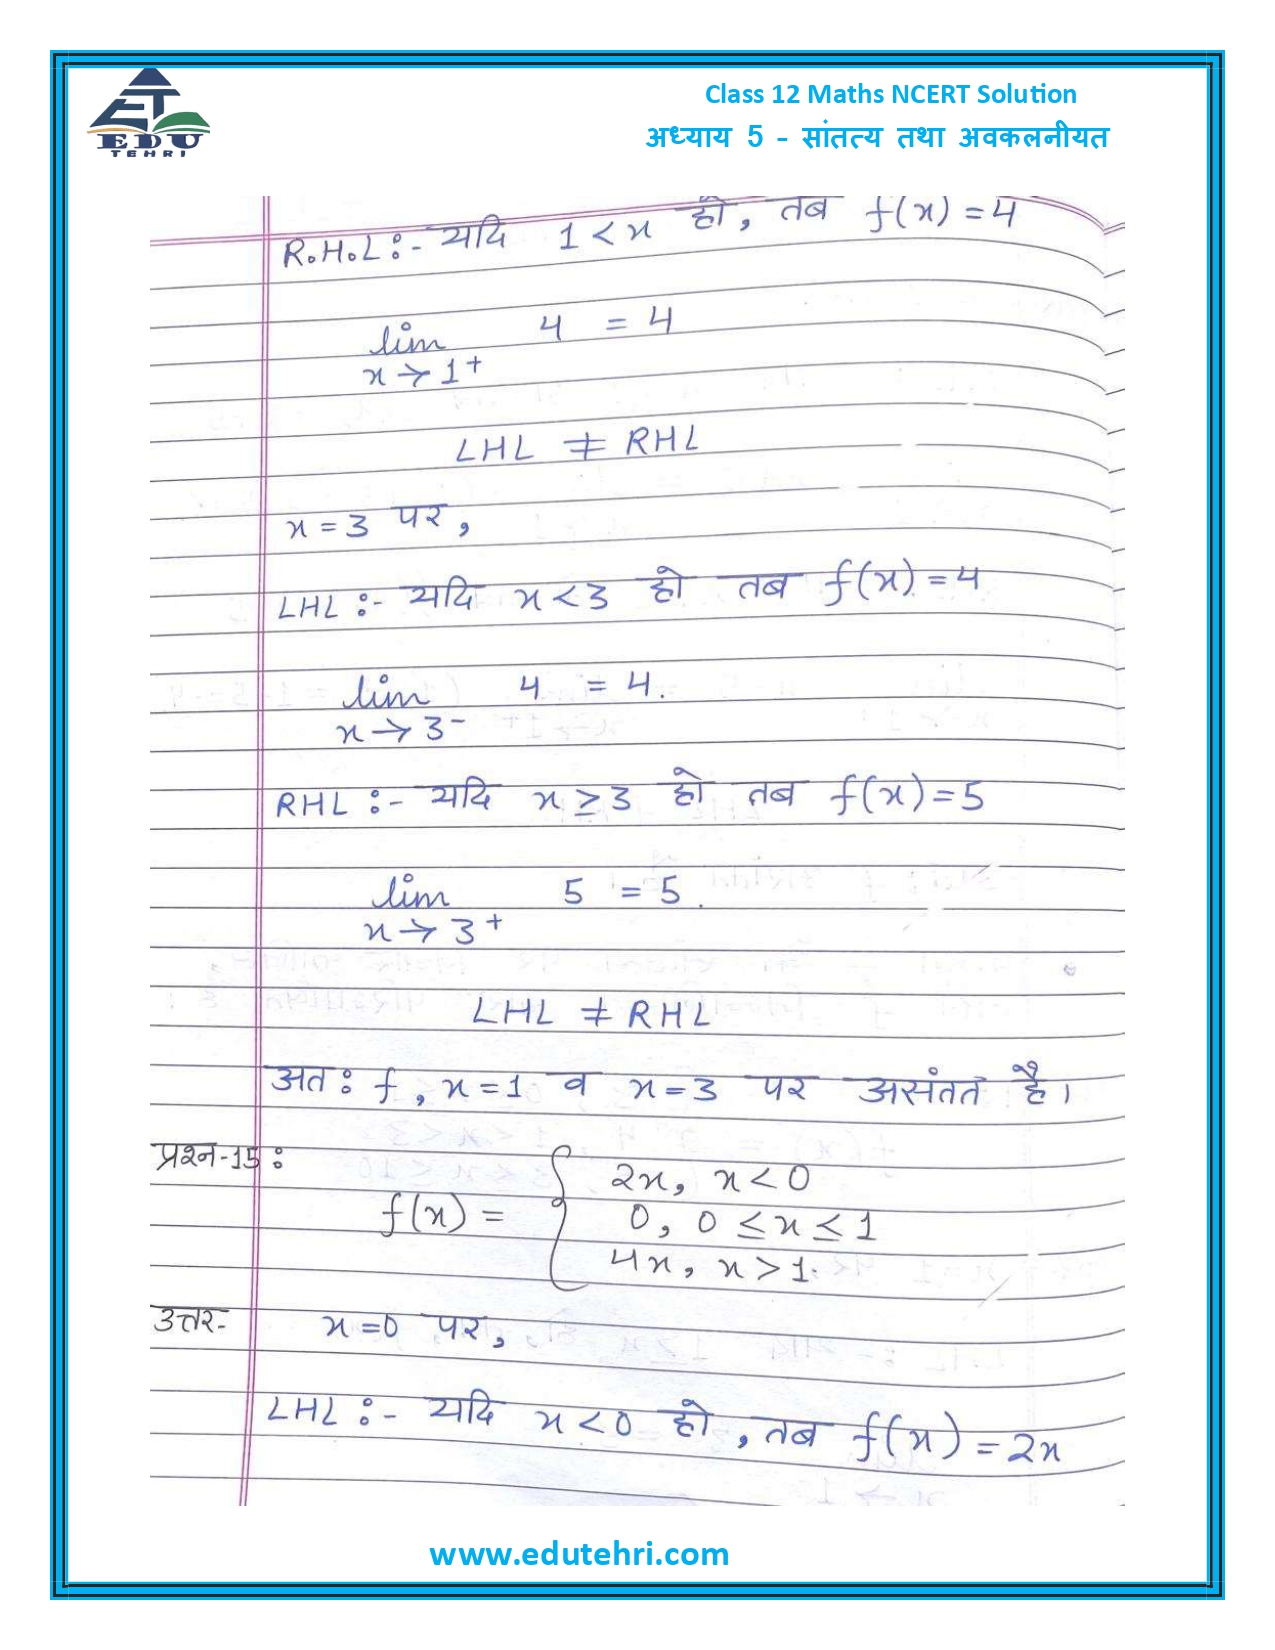 EDU
TEHRI
Class 12 Maths NCERT Solution
अध्याय 5 - सांतत्य तथा अवकलनीयत
R.H.L:- यदि 1 < x हो, तब f(x) = 4
lim 4 = 4
x → 1⁺
LHL ≠ RHL
x = 3 पर,
LHL :- यदि x < 3 हो तब f(x) = 4
lim 4 = 4.
x → 3⁻
RHL :- यदि x ≥ 3 हो तब f(x) = 5
lim 5 = 5.
x → 3⁺
LHL ≠ RHL
अतः f, x = 1 व x = 3 पर असंतत है।
प्रश्न-15:
2x, x < 0
f(x) = { 0, 0 ≤ x ≤ 1
4x, x > 1.
उत्तर- x = 0 पर,
LHL :- यदि x < 0 हो, तब f(x) = 2x
www.edutehri.com